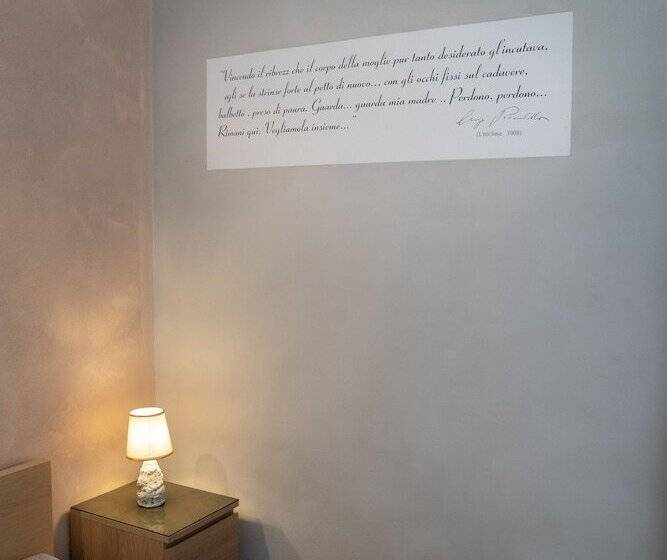 "Vincendo il ribrezz che il corpo della moglie pur tanto desiderato gl'incutava,
egli se la strinse forte al petto di nuovo... con gli occhi fissi sul cadavere,
balbetto , preso di paura. Guarda... guarda mia madre .. Perdono, perdono...
Rimani qui. Vegliamola insieme... "
(L'esclusa 1908)